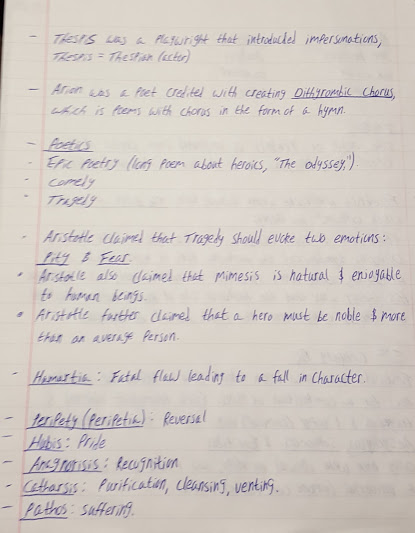 - Thespis was a Playwright that introduced impersonations,
Thespis = Thespian (actor)
- Arion was a Poet credited with creating Dithyrambic Chorus,
which is Poems with chorus in the form of a hymn.
- Poetics
- Epic Poetry (long poem about heroics, "The odyssey,")
- Comedy
- Tragedy
- Aristotle claimed that Tragedy should evoke two emotions:
Pity & Fear.
• Aristotle also claimed that Mimesis is natural & enjoyable
to human beings.
• Aristotle farther claimed that a hero must be noble & more
than an average Person.
- Hamartia: Fatal flaw leading to a fall in Character.
- Peripety (Peripetia): Reversal
- Hubis: Pride
- Anagnorisis: Recognition
- Catharsis: Purification, cleansing, venting.
- Pathos: suffering.